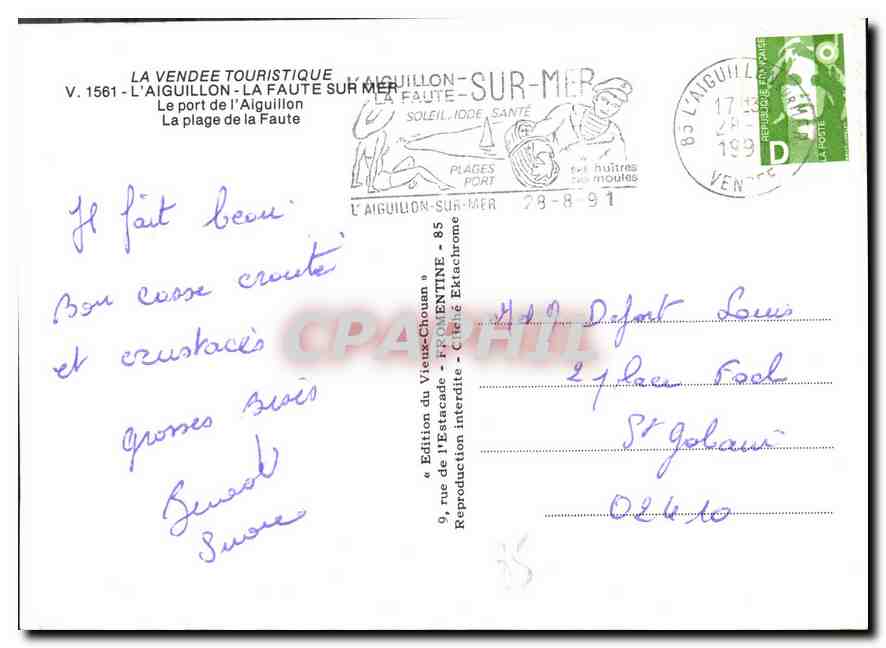 LA VENDEE TOURISTIQUE
V. 1561 - L'AIGUILLON - LA FAUTE SUR MER
Le port de l'Aiguillon
La plage de la Faute
L'AIGUILLON-
LA FAUTE- SUR-MER
SOLEIL, IODE, SANTÉ
PLAGES
PORT
huîtres
moules
L'AIGUILLON-SUR-MER 28-8-91
85 L'AIGUILL
17 H
28-
199
VENDEE
REPUBLIQUE FRANÇAISE
D
LA POSTE
Il fait beau
Bon casse croute
et crustacés
grosses Bises
« Edition du Vieux-Chouan »
9, rue de l'Estacade - FROMENTINE - 85
Reproduction interdite - Cliché Ektachrome
Defort Louis
2 place Foch
St Gobain
02410
85
CPAPHIL